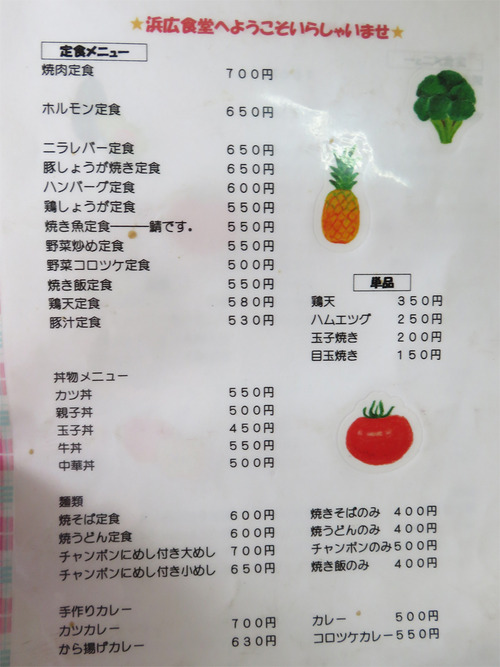 ★浜広食堂へようこそいらしゃいませ★
定食メニュー
焼肉定食 700円
ホルモン定食 650円
ニラレバー定食 650円
豚しょうが焼き定食 650円
ハンバーグ定食 600円
鶏しょうが定食 550円
焼き魚定食―――鯖です。 550円
野菜炒め定食 550円
野菜コロツケ定食 500円
焼き飯定食 550円
鶏天定食 580円
豚汁定食 530円
単品
鶏天 350円
ハムエツグ 250円
玉子焼き 200円
目玉焼き 150円
丼物メニュー
カツ丼 550円
親子丼 500円
玉子丼 450円
牛丼 550円
中華丼 500円
麺類
焼そば定食 600円
焼うどん定食 600円
チャンポンにめし付き大めし 700円
チャンポンにめし付き小めし 650円
焼きそばのみ 400円
焼うどんのみ 400円
チャンポンのみ 500円
焼き飯のみ 400円
手作りカレー
カツカレー 700円
から揚げカレー 630円
カレー 500円
コロツケカレー 550円